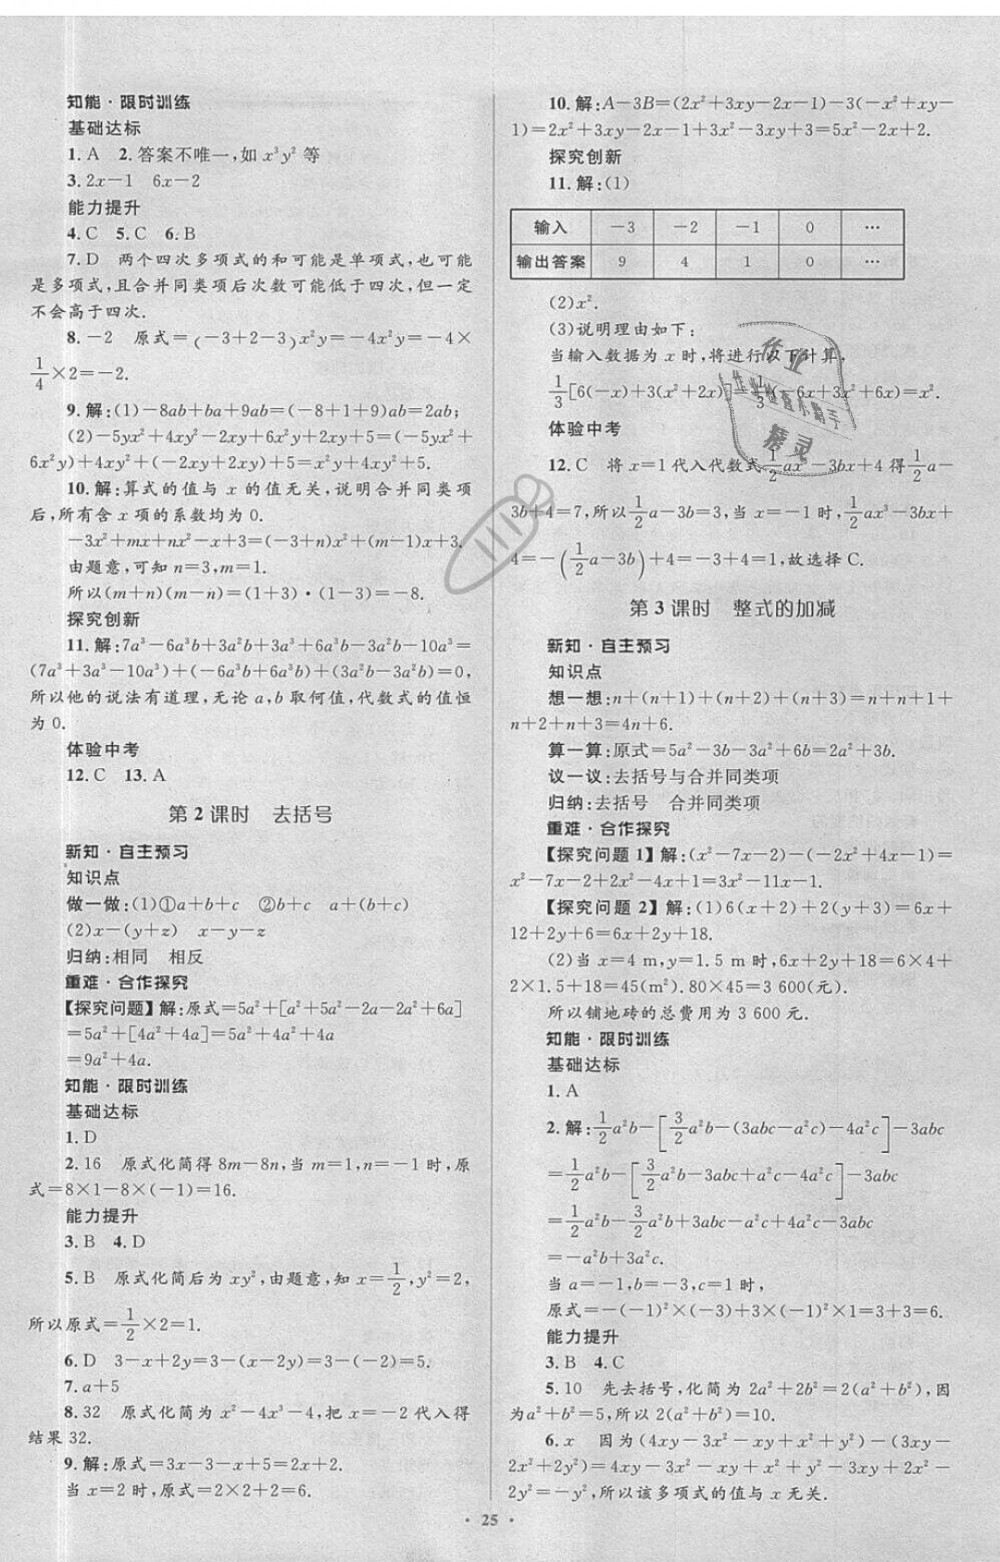 知能·限时训练
基础达标
1.A 2.答案不唯一,如 x³y² 等
3.2x−1 6x−2
能力提升
4.C 5.C 6.B
7.D 两个四次多项式的和可能是单项式,也可能
是多项式,且合并同类项后次数可能低于四次,但一定
不会高于四次.
8.−2 原式=(−3+2−3)x²y=−4x²y=−4×
1/4×2=−2.
9.解:(1)−8ab+ba+9ab=(−8+1+9)ab=2ab;
(2)−5yx²+4xy²−2xy+6x²y+2xy+5=(−5x²y+
6x²y)+4xy²+(−2xy+2xy)+5=x²y+4xy²+5.
10.解:算式的值与 x 的值无关,说明合并同类项
后,所有含 x 项的系数均为 0.
−3x²+mx+nx²−x+3=(−3+n)x²+(m−1)x+3.
由题意,可知 n=3,m=1.
所以(m+n)(m−n)=(1+3)·(1−3)=−8.
探究创新
11.解:7a³−6a³b+3a²b+3a³+6a³b−3a²b−10a³=
(7a³+3a³−10a³)+(−6a³b+6a³b)+(3a²b−3a²b)=0,
所以他的说法有道理,无论 a,b 取何值,代数式的值恒
为 0.
体验中考
12.C 13.A
第 2 课时 去括号
新知·自主预习
知识点
做一做:(1)①a+b+c ②a+b+c a+(b+c)
(2)x−(y+z) x−y−z
归纳:相同 相反
重难·合作探究
【探究问题】解:原式=5a²+[a²+5a²−2a−2a²+6a]
=5a²+[4a²+4a]=5a²+4a²+4a
=9a²+4a.
知能·限时训练
基础达标
1.D
2.16 原式化简得 8m−8n,当 m=1,n=−1 时,原
式=8×1−8×(−1)=16.
能力提升
3.B 4.D
5.B 原式化简后为 xy²,由题意,知 x=1/2,y²=2,
所以原式=1/2×2=1.
6.D 3−x+2y=3−(x−2y)=3−(−2)=5.
7.a+5
8.32 原式化简为 x²−4x³−4,把 x=−2 代入得
结果 32.
9.解:原式=3x−3−x+5=2x+2.
当 x=2 时,原式=2×2+2=6.
10.解:A−3B=(2x²+3xy−2x−1)−3(−x²+xy−
1)=2x²+3xy−2x−1+3x²−3xy+3=5x²−2x+2.
探究创新
11.解:(1)
输入 −3 −2 −1 0 …
输出答案 9 4 1 0 …
(2)x².
(3)说明理由如下:
当输入数据为 x 时,将进行以下计算,
1/3[6(−x)+3(x²+2x)]=1/3(−6x+3x²+6x)=x².
体验中考
12.C 将 x=1 代入代数式1/2ax³−3bx+4 得1/2a−
3b+4=7,所以1/2a−3b=3,当 x=−1 时,1/2ax³−3bx+
4=−(1/2a−3b)+4=−3+4=1,故选择 C.
第 3 课时 整式的加减
新知·自主预习
知识点
想一想:n+(n+1)+(n+2)+(n+3)=n+n+1+
n+2+n+3=4n+6.
算一算:原式=5a²−3b−3a²+6b=2a²+3b.
议一议:去括号与合并同类项
归纳:去括号 合并同类项
重难·合作探究
【探究问题 1】解:(x²−7x−2)−(−2x²+4x−1)=
x²−7x−2+2x²−4x+1=3x²−11x−1.
【探究问题 2】解:(1)6(x+2)+2(y+3)=6x+
12+2y+6=6x+2y+18.
(2)当 x=4 m,y=1.5 m 时,6x+2y+18=6×4+
2×1.5+18=45(m²).80×45=3 600(元).
所以铺地砖的总费用为 3 600 元.
知能·限时训练
基础达标
1.A
2.解:1/2a²b−[3/2a²b−(3abc−a²c)−4a²c]−3abc
=1/2a²b−[3/2a²b−3abc+a²c−4a²c]−3abc
=1/2a²b−3/2a²b+3abc−a²c+4a²c−3abc
=−a²b+3a²c.
当 a=−1,b=−3,c=1 时,
原式=−(−1)²×(−3)+3×(−1)²×1=3+3=6.
能力提升
3.B 4.C
5.10 先去括号,化简为 2a²+2b²=2(a²+b²),因
为a²+b²=5,所以 2(a²+b²)=10.
6.x 因为(4xy−3x²−xy+x²+y²)−(3xy−
2x²+2y²)=4xy−3x²−xy+x²+y²−3xy+2x²−
2y²=−y²,所以该多项式的值与 x 无关.
· 25 ·
作业
精灵